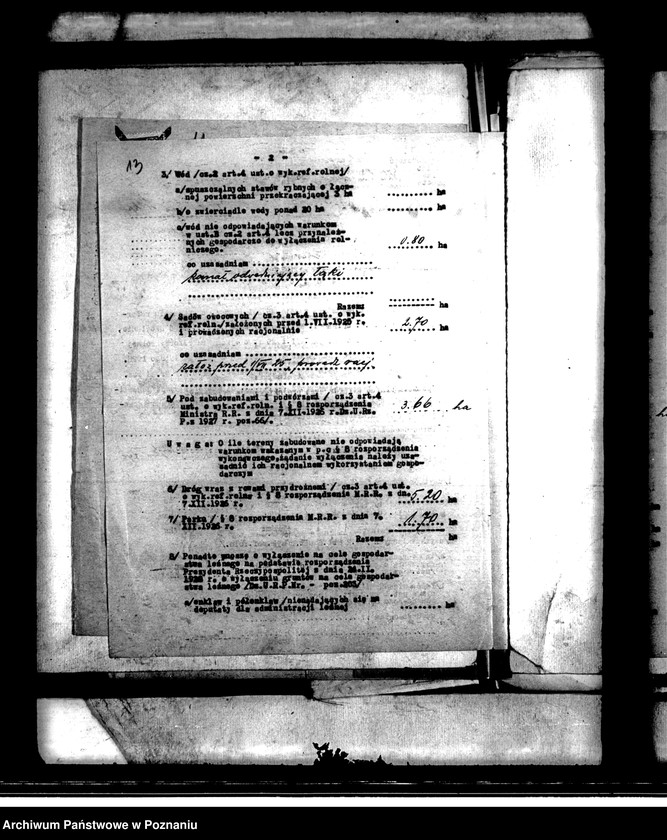 13
- 2 -
3/ Wód /cz.2 art.4 ust.o wyk.ref.rolnej/
a/spuszczalnych stawów rybnych o łącz-
nej powierzchni przekraczającej 3 ha ......... ha
b/o zwierciadle wody ponad 20 ha ......... ha
c/wód nie odpowiadających warunkom
w ust.B cz.2 art.4 lecz przynależ-
nych gospodarczo do wyłączenia rol-
niczego. 0.80 ha
co uzasadniam
kanał odwadniający łąki
Razem: ha
4/ Sadów owocowych / cz.3 art.4 ust. o wyk.
ref.roln./założonych przed 1.VII.1925 r.
i prowadzonych racjonalnie 2.70 ha
co uzasadniam
założ. przed 1/VII 25 prowadz. racj.
5/ Pod zabudowaniami i podwórzami / cz.3 art.4
ust. o wyk.ref.roln. i § 8 rozporządzenia
Ministra R.R. z dnia 7.XII.1926 r.Dz.U.Rz.
P.z 1927 r. poz.66/. 3.66 ha
U w a g a: O ile tereny zabudowane nie odpowiadają
warunkom wskazanym w p.c § 8 rozporządzenia
wykonawczego,żądanie wyłączenia należy uza-
sadnić ich racjonalnem wykorzystaniem gospo-
darczym
6/ Dróg wraz z rowami przydrożnemi / cz.3 art.4 ust.
o wyk.ref.rolnej i § 8 rozporządzenia M.R.R. z dn.
7.XII.1926 r. 5.20 ha
7/ Parku / § 8 rozporządzenia M.R.R. z dnia 7.
XII.1926 r. 1.70 ha
Razem: ha
8/ Ponadto wnoszę o wyłączenie na cele gospodar-
stwa leśnego na podstawie rozporządzenia
Prezydenta Rzeczypospolitej z dnia
1928 r. o wyłączeniu gruntów na cele gospodar-
stwa leśnego /Dz.U.R.P.Nr. - poz.
a/enklaw i półenklaw /nienadających się na
deputaty dla administracji leśnej ......... ha
Archiwum Państwowe w Poznaniu